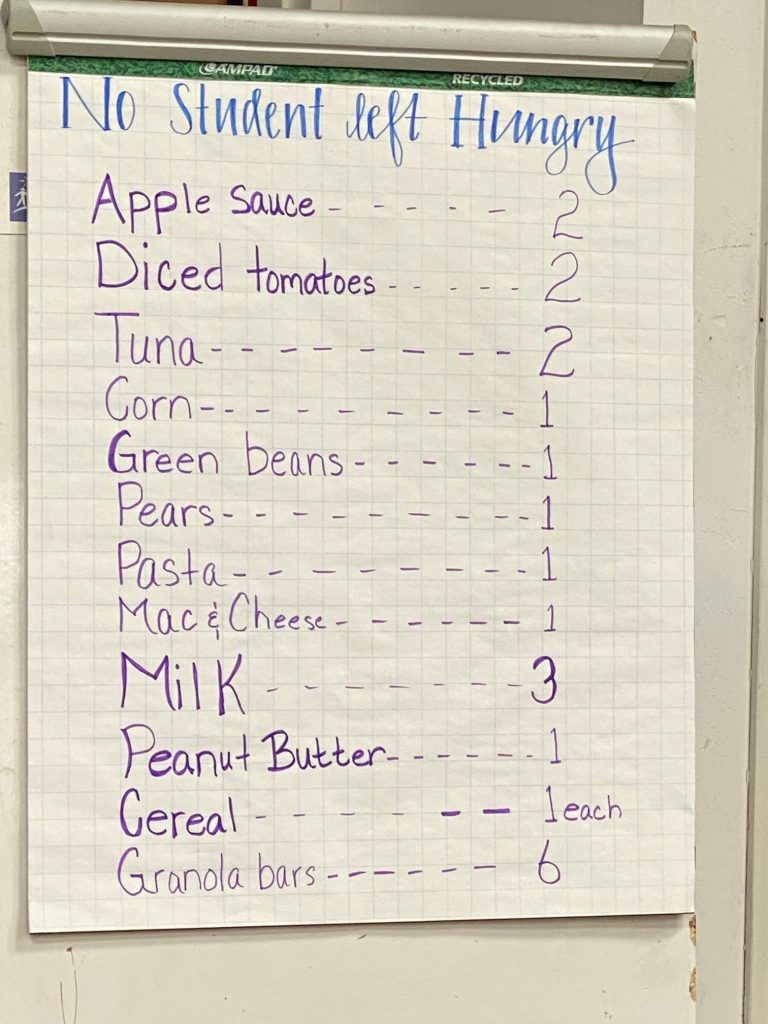 CAMPAD RECYCLED
No Student left Hungry
Apple Sauce - - - - - 2
Diced tomatoes - - - - - 2
Tuna - - - - - - - - 2
Corn - - - - - - - - - 1
Green beans - - - - - - - 1
Pears - - - - - - - - - 1
Pasta - - - - - - - - 1
Mac & Cheese - - - - - - 1
Milk - - - - - - - 3
Peanut Butter - - - - - - 1
Cereal - - - - - - 1 each
Granola bars - - - - - - 6